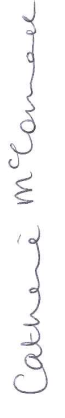 Catherine McConnell